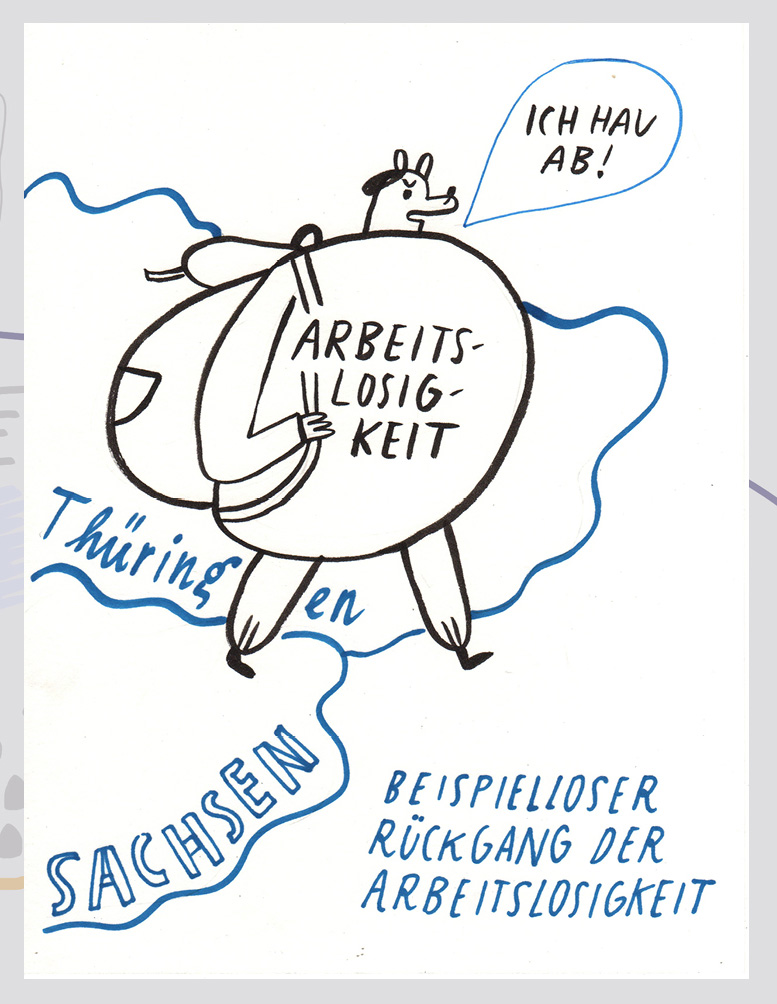 ICH HAU
AB!
ARBEITS-
LOSIG-
KEIT
Thüringen
SACHSEN
BEISPIELLOSER
RÜCKGANG DER
ARBEITSLOSIGKEIT